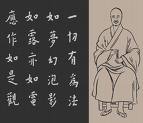 一切有為法
如夢幻泡影
如露亦如電
應作如是觀